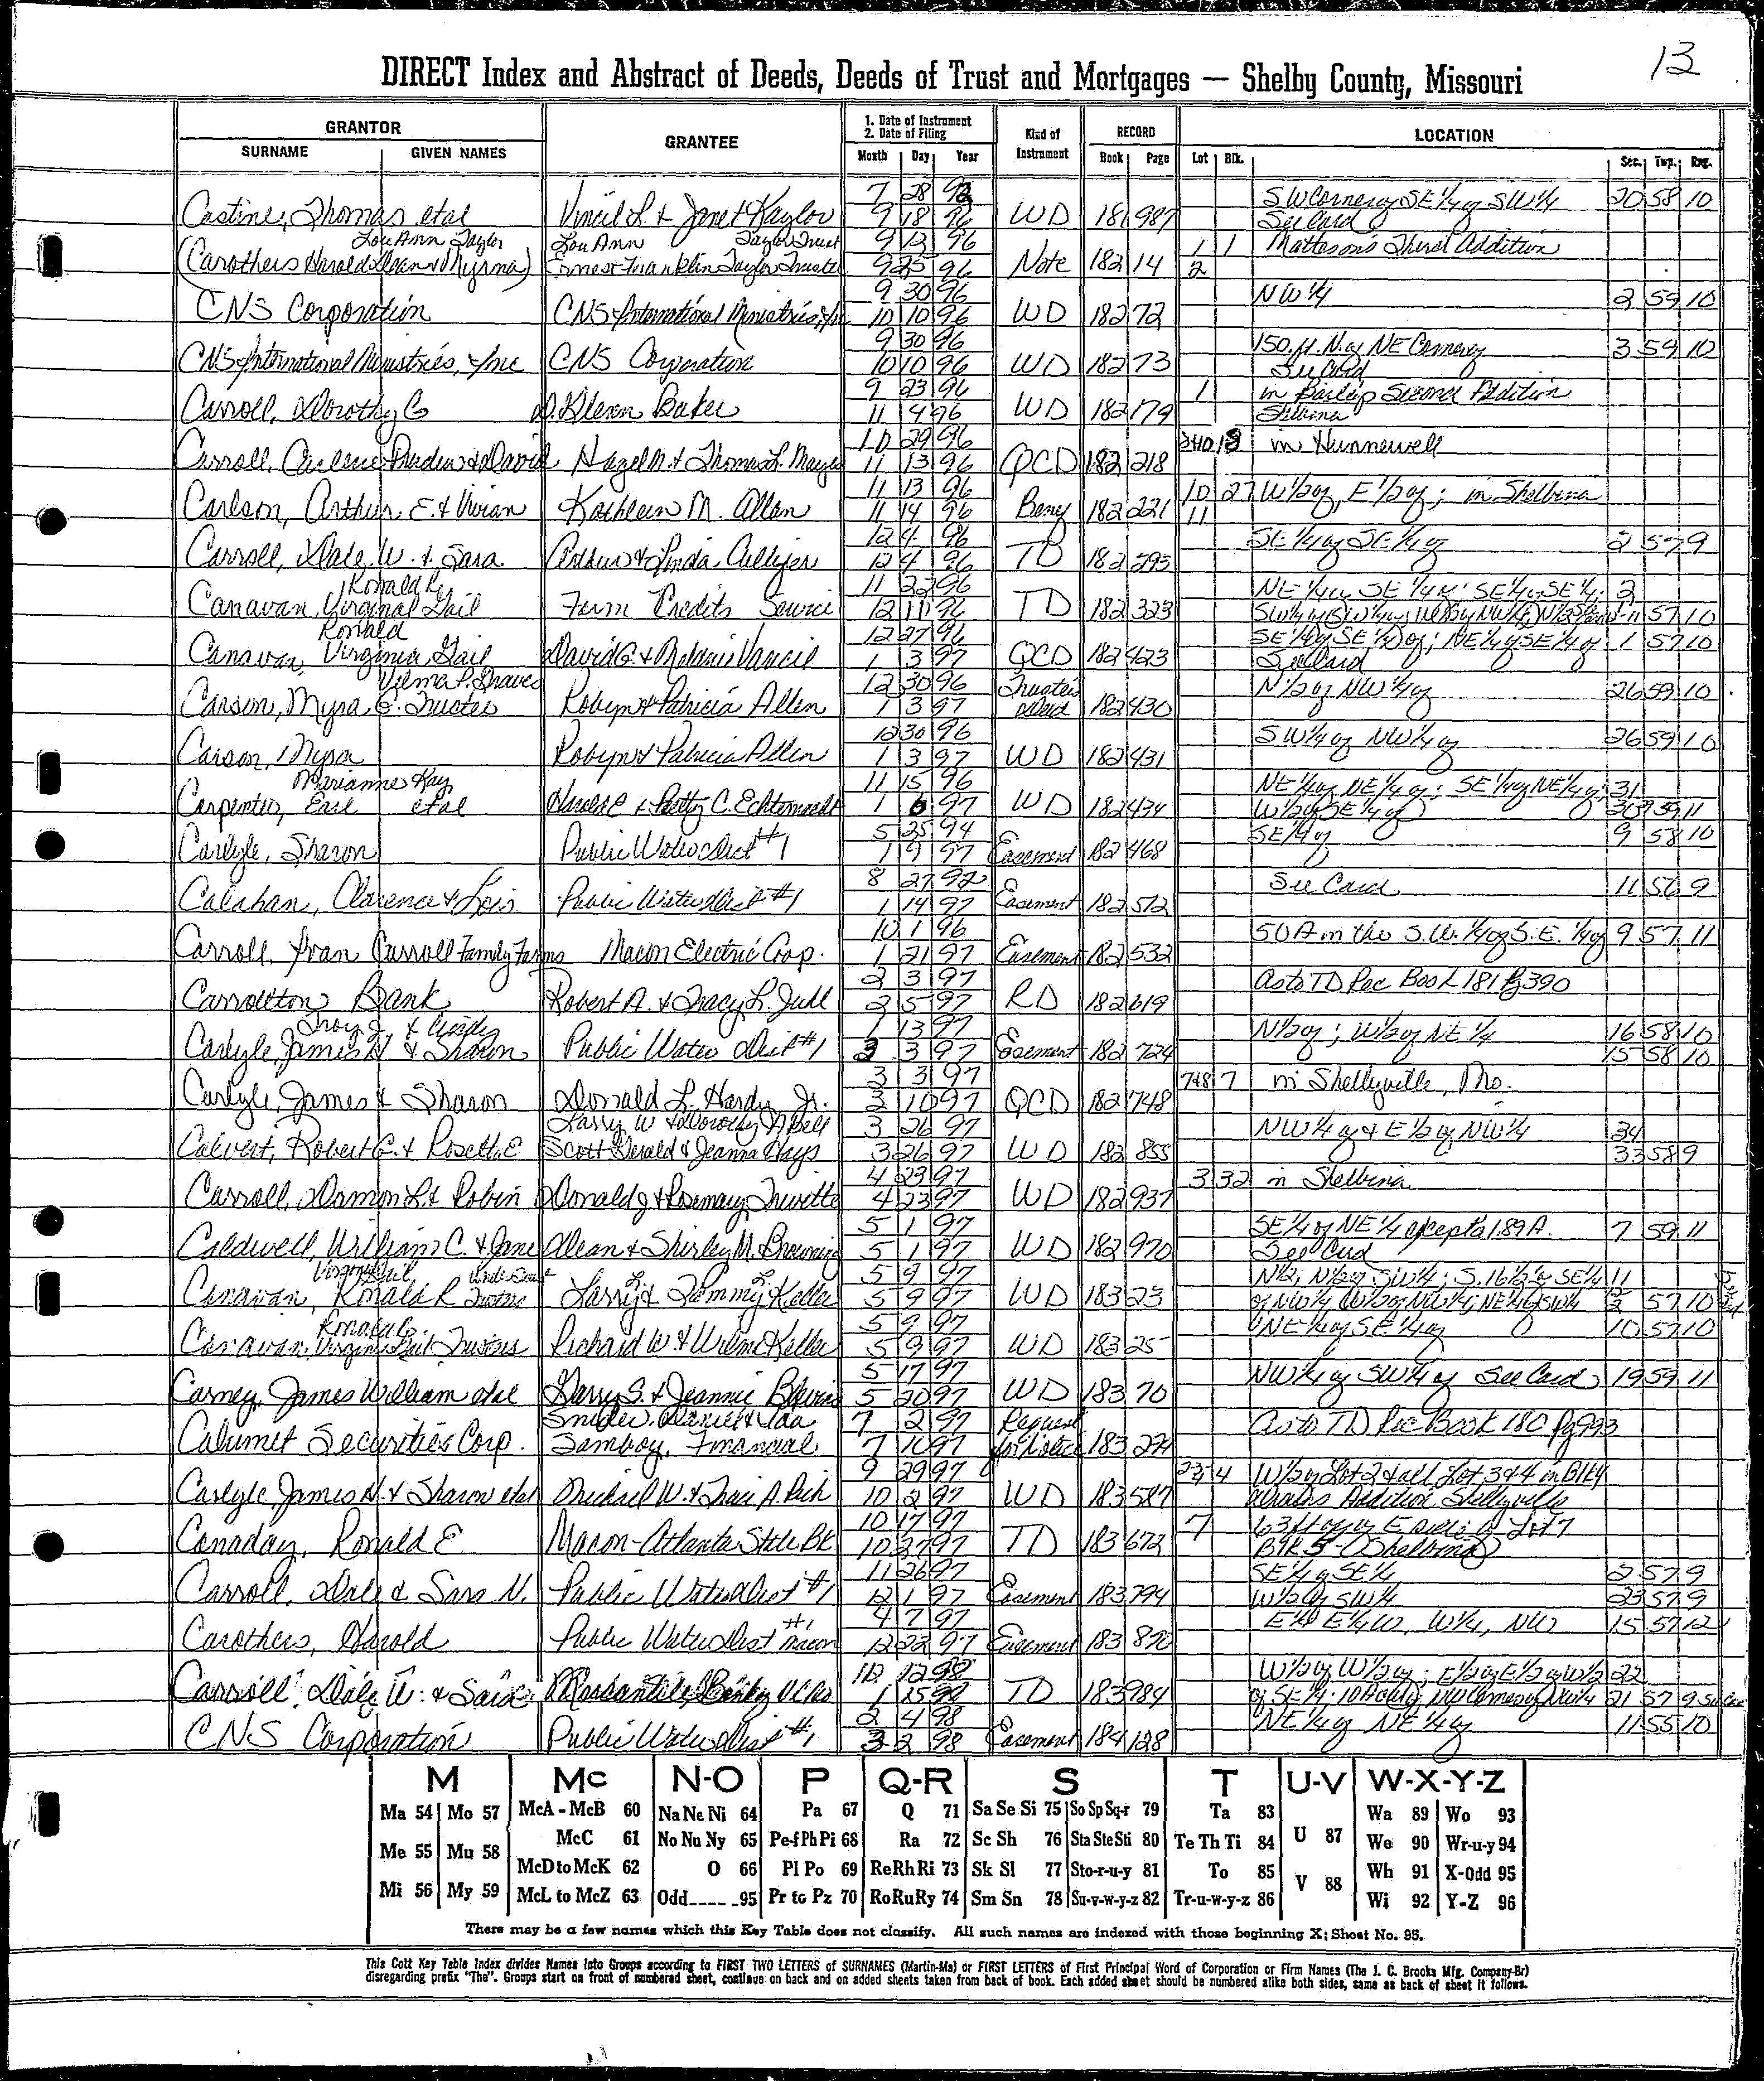 13
DIRECT Index and Abstract of Deeds, Deeds of Trust and Mortgages — Shelby County, Missouri
GRANTOR GRANTEE 1. Date of Instrument 2. Date of Filing Kind of Instrument RECORD LOCATION
SURNAME GIVEN NAMES Month Day Year Book Page Lot Blk. Sec. Twp. Rng.
7 28 SW Corner of SE 1/4 of SW 1/4 20 58 10
Castine, Thomas etal Vincil L. & Janet Kaylor 9 18 96 WD 181 987 See Card
Lou Ann Taylor Lou Ann Taylor Trust 9 12 96 1 1 Mattason's Third Addition
(Carothers Harold Dean & Myrna) Ernest Franklin Taylor Trustee 9 25 96 Note 182 14 2
9 30 96 NW 1/4 2 59 10
CNS Corporation CNS International Ministries, Inc 10 10 96 WD 182 72
9 30 96 150 ft. N. of NE Corner of 3 59 10
CNS International Ministries, Inc CNS Corporation 10 10 96 WD 182 73 See Card
9 23 96 1 in Second Addition
Carroll, Dorothy C Baker 11 4 96 WD 182 179 Shelbina
10 29 96 in Hunnewell
Carroll, & David Hazel M. & Thomas L. 11 13 96 QCD 182 218
11 13 96 10 27 W 1/2 of, E 1/2 of; in Shelbina
Carlson, Arthur E. & Vivian Kathleen M. Allen 11 14 96 182 221 11
12 4 96 SE 1/4 of SE 1/4 of 2 57 9
Carroll, Dale W. & Sara & Linda 12 4 96 TD 182 293
Ronald R. 11 22 96 NE 1/4 of SE 1/4 of; SE 1/4 of SE 1/4; 2
Canavan, Virginia Gail Farm Credit Service 12 11 96 TD 182 323 57 10
Ronald 12 27 96 SE 1/4 of SE 1/4 of; NE 1/4 of SE 1/4 of 1 57 10
Canavan, Virginia Gail David G. & Melanie Vancil 1 3 97 QCD 182 423 See Card
Velma P. Shaver 12 30 96 Trustee's N 1/2 of NW 1/4 of 26 59 10
Carson, Myra E. Trustee Robyn & Patricia Allen 1 3 97 Deed 182 430
12 30 96 SW 1/4 of NW 1/4 of 26 59 10
Carson, Myra Robyn & Patricia Allen 1 3 97 WD 182 431
Marianne Kay 11 15 96 NE 1/4 of NE 1/4 of; SE 1/4 of NE 1/4 of; 31
Carpenter, Earl etal Harold & Betty C. Echternacht 1 6 97 WD 182 434 W 1/2 of SE 1/4 of 59 11
5 25 94 SE 1/4 of 9 58 10
Carlyle, Sharon Public Water Dist #1 1 9 97 Easement 182 468
8 27 92 See Card 11 56 9
Calahan, Clarence & Lois Public Water Dist #1 1 14 97 Easement 182 512
10 1 96 50A in the S.W. 1/4 of S.E. 1/4 of 9 57 11
Carroll, Ivan Carroll Family Farms Macon Electric Coop. 1 21 97 Easement 182 532
2 3 97 as to TD Rec Book 181 Pg 390
Carrollton Bank Robert A. & Tracy L. Judd 2 5 97 RD 182 619
Troy J. & Cindy 1 13 97 N 1/2 of; W 1/2 of NE 1/4 16 58 10
Carlyle, James H & Sharon Public Water Dist #1 3 3 97 Easement 182 724 15 58 10
3 3 97 7&8 7 in Shelbyville, Mo.
Carlyle, James & Sharon Donald L. Hardy Jr. 3 10 97 QCD 182 748
Larry W & Dorothy A Bell 3 26 97 NW 1/4 of & E 1/2 of NW 1/4 34
Calvert, Robert C. & Rosetta E Scott Gerald & Jeanna Hays 3 26 97 WD 182 855 33 58 9
4 23 97 3 32 in Shelbina
Carroll, Damon L. & Robin Donald J & Rosemary 4 23 97 WD 182 937
5 1 97 SE 1/4 of NE 1/4 except 1.89A. 7 59 11
Caldwell, William C. & Jane Dean & Shirley M. Browning 5 1 97 WD 182 970 See Card
Virginia Gail 5 9 97 N 1/2; N 1/2 of SW 1/4; S. 16 1/2' of SE 1/4 11
Canavan, Ronald R Trustee Larry L & Tammy L Keller 5 9 97 WD 183 23 of NW 1/4, W 1/2 of NW 1/4; NE 1/4 of SW 1/4 57 10
Ronald R. 5 9 97 NE 1/4 of SE 1/4 of 10 57 10
Canavan, Virginia Gail Trustees Richard W. & Wilma Keller 5 9 97 WD 183 25
5 17 97 NW 1/4 of SW 1/4 of See Card 19 59 11
Carney, James William etal Larry S. & Jeannie Blevins 5 20 97 WD 183 70
Snider, Daniel & Ida 7 2 97 Request as to TD Rec Book 180 Pg 993
Calumet Securities Corp. Tamboy Financial 7 10 97 for Notice 183 274
9 29 97 4 W 1/2 of Lot 2 & all Lot 3 & 4 in Blk 4
Carlyle, James H. & Sharon etal Michael W. & Traci A. 10 2 97 WD 183 587 Addition Shelbyville
10 17 97 7 63 ft of E side of Lot 7
Canaday, Ronald E. Macon-Atlanta State Bk 10 27 97 TD 183 672 Blk 5 Shelbina
11 26 97 SE 1/4 of SE 1/4 2 57 9
Carroll, Dale & Sara N. Public Water Dist #1 12 1 97 Easement 183 794 W 1/2 of SW 1/4 23 57 9
4 7 97 15 57 12
Carothers, Harold Public Water Dist #1 Macon 12 22 97 Easement 183 890
12 98 W 1/2 of W 1/2 of; E 1/2 of E 1/2 of W 1/2 22
Carroll, Dale W. & Sara Mercantile Bank 1 TD 183 984 of SE 1/4; 10 A NW Corner of NW 1/4 21 57 9 See Card
2 4 98 NE 1/4 of NE 1/4 of 11 55 10
CNS Corporation Public Water Dist #1 3 2 98 Easement 184 128
M Mc N-O P Q-R S T U-V W-X-Y-Z
Ma 54 Mo 57 McA - McB 60 Na Ne Ni 64 Pa 67 Q 71 Sa Se Si 75 So Sp Sq-r 79 Ta 83 U 87 Wa 89 Wo 93
Me 55 Mu 58 McC 61 No Nu Ny 65 Pe-f Ph Pi 68 Ra 72 Sc Sh 76 Sta Ste Sti 80 Te Th Ti 84 We 90 Wr-u-y 94
McD to McK 62 O 66 Pl Po 69 Re Rh Ri 73 Sk Sl 77 Sto-r-u-y 81 To 85 V 88 Wh 91 X-Odd 95
Mi 56 My 59 McL to McZ 63 Odd____95 Pr to Pz 70 Ro Ru Ry 74 Sm Sn 78 Su-v-w-y-z 82 Tr-u-w-y-z 86 Wi 92 Y-Z 96
There may be a few names which this Key Table does not classify. All such names are indexed with those beginning X; Sheet No. 95.
This Cott Key Table Index divides Names Into Groups according to FIRST TWO LETTERS of SURNAMES (Martin-Ma) or FIRST LETTERS of First Principal Word of Corporation or Firm Names (The J. C. Brooks Mfg. Company-Br)
disregarding prefix "The". Groups start on front of numbered sheet, continue on back and on added sheets taken from back of book. Each added sheet should be numbered alike both sides, same as back of sheet it follows.